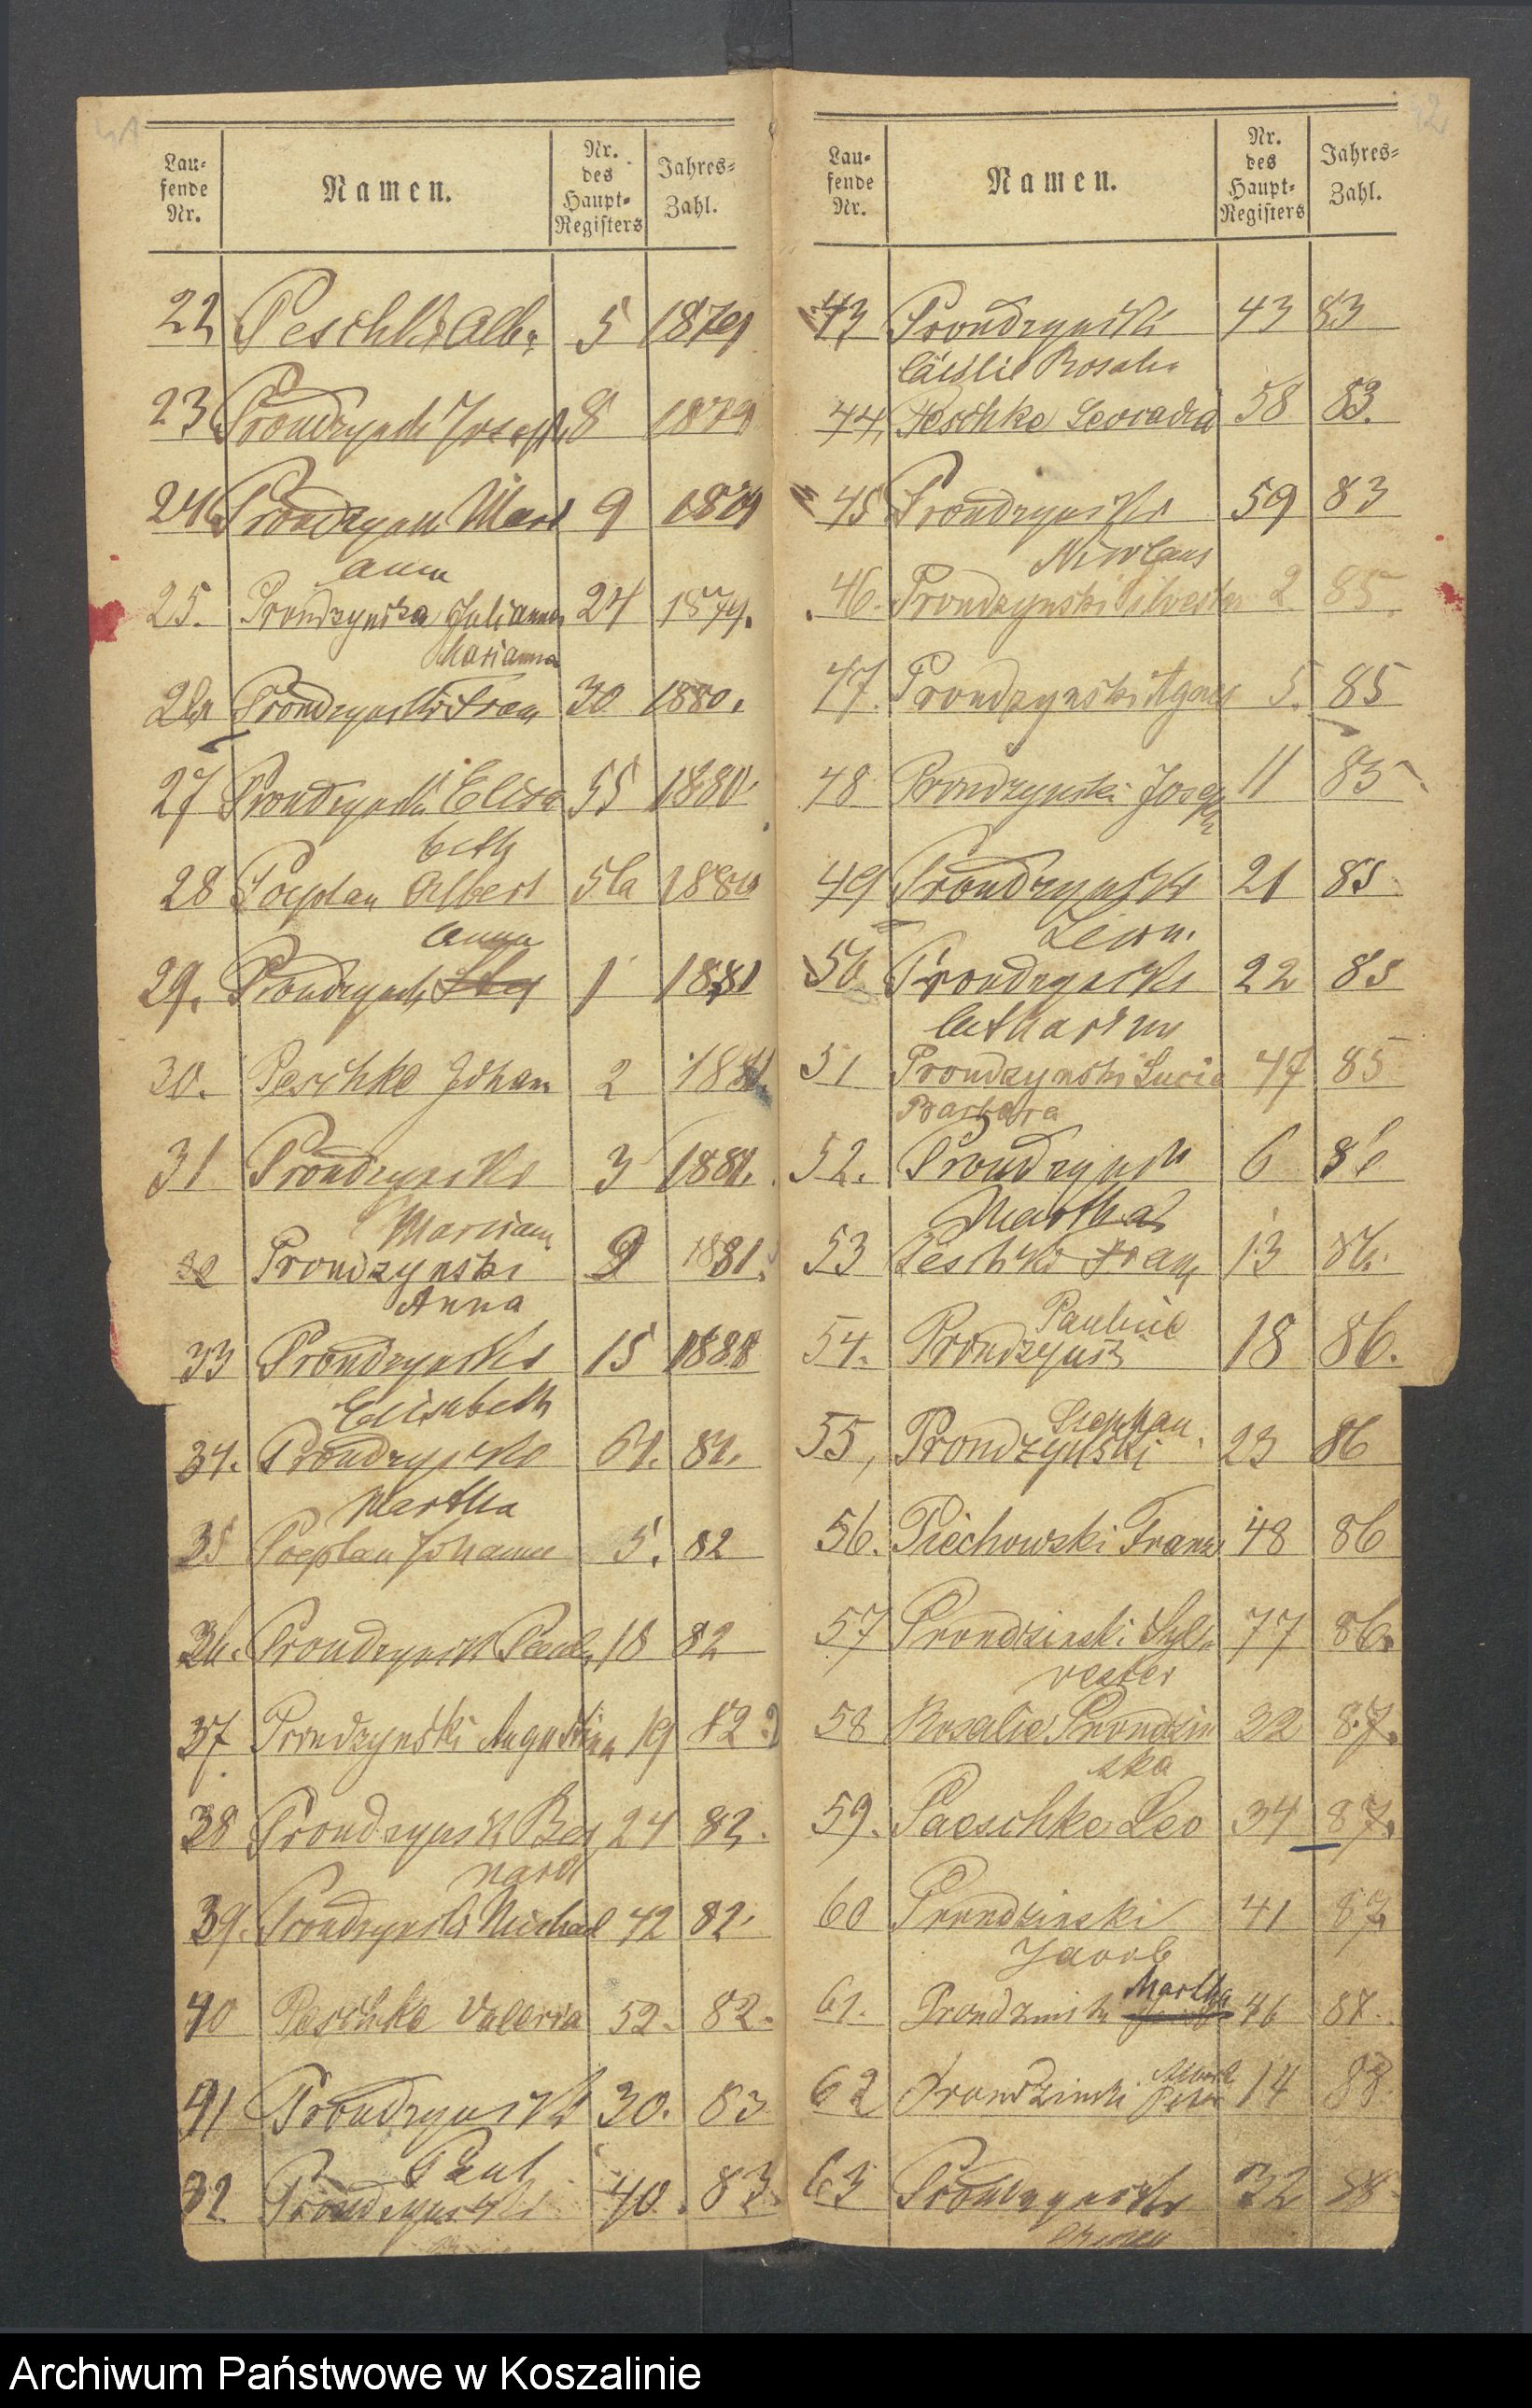 41
Lau-
fende
Nr.
Namen.
Nr.
des
Haupt-
Registers
Jahres-
Zahl.
22 Peschke Alb. 5 1879
23 Prondzynski Joseph 8 1879
24 Prondzynski 9 1879
Anna
25. Prondzynska Julianna 24 1879.
Marianna
26 Prondzynski Franz 30 1880.
27 Prondzynski Elisa 55 1880
beth
28 Poeplau Albert 56 1880
Anna
29. Prondzynski 1 1881
30. Peschke Johann 2 1881.
31 Prondzynski 3 1881.
Mariann
32 Prondzynski 9 1881.
Anna
33 Prondzynski 15
Elisabeth
34. Prondzynski 61. 81.
Martha
35 Poeplau Johann 5. 82
36. Prondzynski Paul 18 82
37 Prondzynski Augustina 19 82
38 Prondzynski Ber 24 82.
nard
39. Prondzynski Michael 42 82.
40 Peschke Valeria 52. 82.
41 Prondzynski 30. 83
Paul
Prondzynski 40. 83.
42
Lau-
fende
Nr.
Namen.
Nr.
des
Haupt-
Registers
Jahres-
Zahl.
43 Prondzynski 43 83
Cäcilie Rosalie
44. Peschke Leocadia 58 83.
45 Prondzynski 59 83
Nicolaus
46. Prondzynski Silvester 2 85.
47. Prondzynski Agnes 5. 85
48 Prondzynski Joseph 11 85
49 Prondzynski 21 85
Leon.
50. Prondzynski 22 85
Catharina
51 Prondzynski Lucia 47 85
Barbara
52. Prondzynski 6 86
Martha
53 Peschke Franz 13 86.
Pauline
54. Prondzynski 18 86.
Stephan.
55, Prondzynski 23 86
56. Piechowski Franz 48 86
57 Prondzinski Sylv 77 86.
vester
58 Rosalie Prondzin 32 87.
ska
59. Paeschke Leo 34 87.
60 Prondzinski 41 87
Jacob
Martha
61. Prondzinski 46 87.
Albert
62 Prondzinski Peter 14 88.
63 Prondzynski 32 88
Archiwum Państwowe w Koszalinie